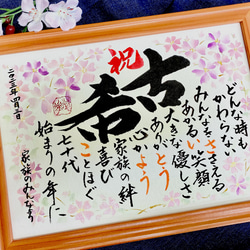 祝
古希
どんな時も
かわらない
みんなをささえる
あかるい笑顔
大きな優しさ
ありがとう
心かよう
家族の絆
喜び
ことほぐ
七十代
始まりの年に
家族のみんなより